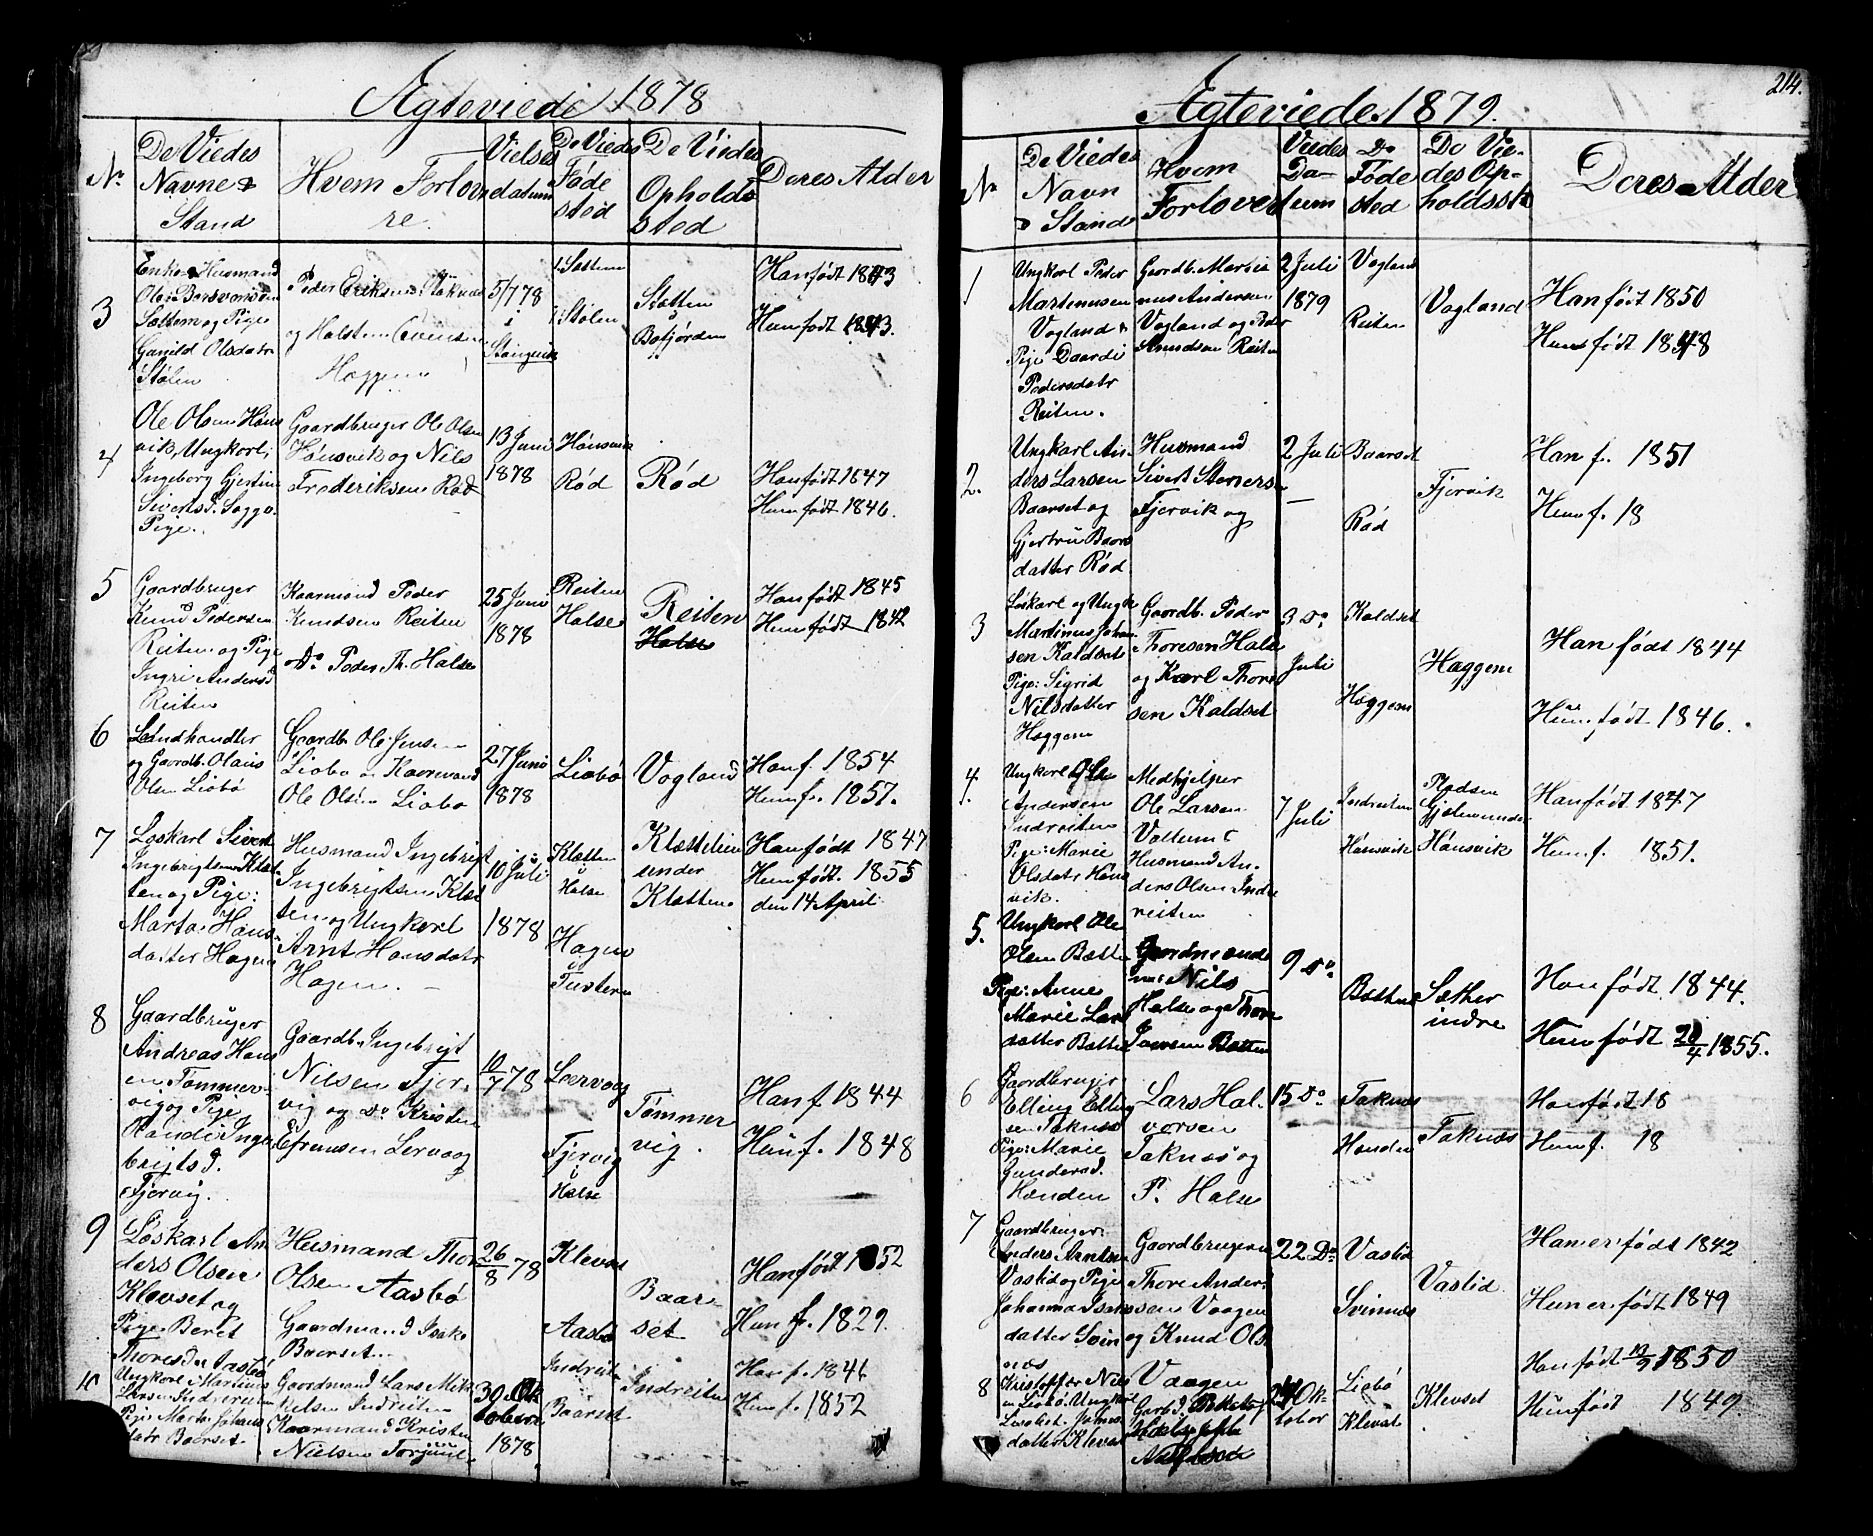 Agteviede 1878
No
De Viedes
Navne &
Stand
Hvem Forlove
re.
Vielses
datum
De Viedes
Føde
sted
De Viedes
Opholds
sted
Deres Alder
3
Enke- Husmand
Sættem og Pige
Gunild Olsdatr
Stølen
Peder Eriksen
og Halsten Evensen
Haggen
5/7 78
i
Stangvik
Settem
Stølen
Sættem
Bøfjorden
Han født 1843
Hun født 1843.
4
Ole Olsen Høns
vik, Ungkarl,
Ingeborg Gjertine
Sivertsd.
Pige.
Gaardbruger Ole Olsen
Hønsvik og Nils
Frederiksen Rød
13 Juni
1878
Hønsvik
Rød
Rød
Han født 1847
Hun født 1846.
5
Gaardbruger
Knud Pedersen
Reiten og Pige
Ingri Andersd
Reiten
Kaarmand Peder
Knudsen Reiten
Do Peder Th. Halse
25 Juni
1878
Reiten
Halse
Reiten
Halse
Han født 1845
Hun født 1842
6
Landhandler
og Gaardb. Olaus
Olsen Liabø
Gaardb. Ole Jensen
Liabø og Kaarmand
Ole Olsen Liabø
27 Juni
1878
Liabø
Vogland
Han f. 1854
Hun f. 1857.
7
Løskarl Sivert
Ingebrigtsen Klæt
ten og Pige:
Marta Hans
datter Hagen
Husmand Ingebrigt
Ingebrigtsen Klæt
ten og Ungkarl
Arnt Hansdatr
Hagen.
10 Juli
1878
Klætten
i
Halse
Hagen
i
Tustern
Klætteien
under
Klætten
Han født 1847
Hun født. 1855
den 14 April
8
Gaardbruger
Andreas Hans
en Tømmer-
vig og Pige
Randi Inge
brigtsd.
Fjervig.
Gaardb. Ingebrigt
Nilsen Fjer-
vig og Do Kristen
Efraimsen Lervaag
10/7 78
Leervaag
Fjervig
i
Halse
Tømmer
vig.
Han f. 1844
Hun f. 1848
9
Løskarl An
ders Olsen
Klevset og
Pige Beret
Thoresd. Aasbø
Husmand Thor
Olsen Aasbø
Gaardmand Isak
Baarset
26/8 78
Klevset
Aasbø
Baar-
set
Han født 1852
Hun f. 1829.
10
Ungkarl Martinus
Larsen Indreiten
Pige Marta Johans
datr Baarset
Gaardmand Lars Mik
kelsen Indreiten
Kaarmand Kristen
Nielsen
30. Ok
tober
1878
Indreite
Baarset
Indreiten
Han f. 1846
Hun f. 1852
214.
Agteviede 1879.
No
De Viedes
Navn
& Stand
Hvem
Forlovet
Viedes
Da-
tum
Do
Føde
sted
De Vie-
des Op-
holdsst.
Deres Alder
1
Ungkarl Peder
Martinusen
Vogland &
Pige Daardi
Pedersdatr
Reiten.
Gaardb. Marti
nus Andersen
Vogland og Peder
Knudsen Reiten
2 Juli
1879
Vogland
Reiten
Vogland
Han født 1850
Hun født 1848
2.
Ungkarl An-
ders Larsen
Baarset og
Gjertru Baars
datter Rød
Husmand
Sivert Stenersen
Fjervik og
2 Juli
Baarset
Rød
Fjervik
Han f. 1851
Hun f. 18
3
Løskarl og Ungk
Martinus Johan
sen Kaldset
Pige: Sigrid
Nilsdatter
Haggen
Gaardb. Peder
Thoresen Halse
og Karl Thor
sen Kaldset
3 Do
Juli
Kaldset
Haggen
Haggem
Han født 1844
Hun født 1846.
4.
Ungkarl Ole
Andersen
Indreiten
Pige: Marie
Olsdatr Høns
vik.
Medhjelper
Ole Larsen
Husmand An-
ders Olsen Indr
reiten
7 Juli
Indreiten
Hønsvik
Hønsvik
Han født 1847
Hun f. 1851.
5.
Ungkarl Ole
Olsen Bætten
Pige: Anne
Marie Lars
datter Bætten
Gaardmænd
Nils
Halse og Thore
Bætten
9 Do
Bætten
Sæther
indre
Han født 1844.
Hun født 20/4 1855.
6
Gaardbruger
Elling Elling
sen Taknæs
Pige: Marie
Gundersd.
Hænden
Lars Hal-
vorsen
Taknæs og
P. Halse
15 Do
Taknæs
Hænden
Taknæs
Han født 18
Hun f. 18
7
Gaardbruger
Anders Arntsen
Vaslid og Pige
Johanna Isaks
datter Svin
næs
Gaardbrugerne
Thore Anders
sen Vaagen
og Knud Ols
Vaagen
22 Do
Vaslid
Svinnæs
Vaslid
Han er født 1842
Hun er født 1849
8
Kristoffer Nils
en Liabø Ungkarl
Lisabet Johans
datter Klevset
24 Ok-
tober
Liabø
Klevset
Klevset
Han født 1850
Hun født 1849.